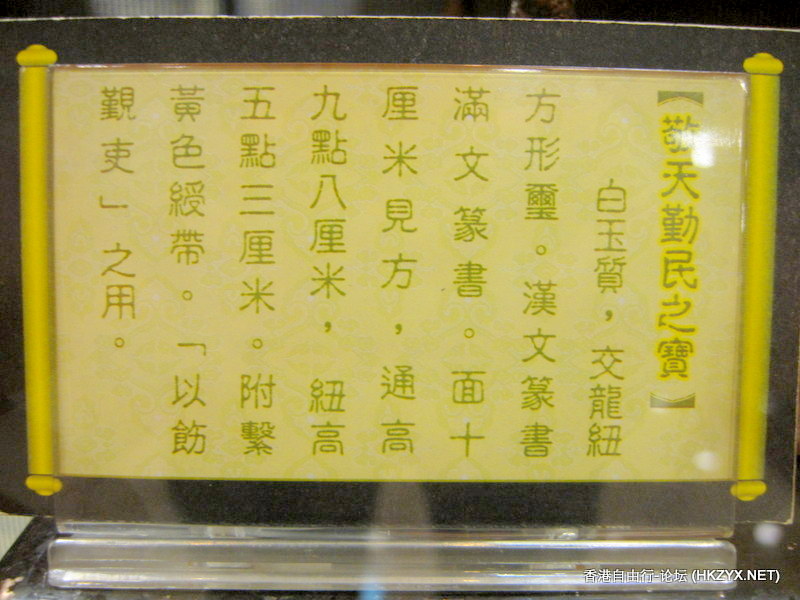 【敬天勤民之寶】
白玉質，交龍紐
方形璽。漢文篆書
滿文篆書。面十
厘米見方，通高
九點八厘米，紐高
五點三厘米。附繫
黃色綬帶。「以飭
覲吏」之用。
香港自由行-论坛 (HKZYX.NET)